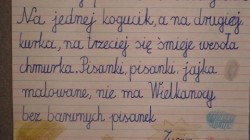 Na jednej kogucik, a na drugiej
kurka, na trzeciej się śmieje wesoła
chmurka. Pisanki, pisanki, jajka
malowane, nie ma Wielkanocy
bez barwnych pisanek